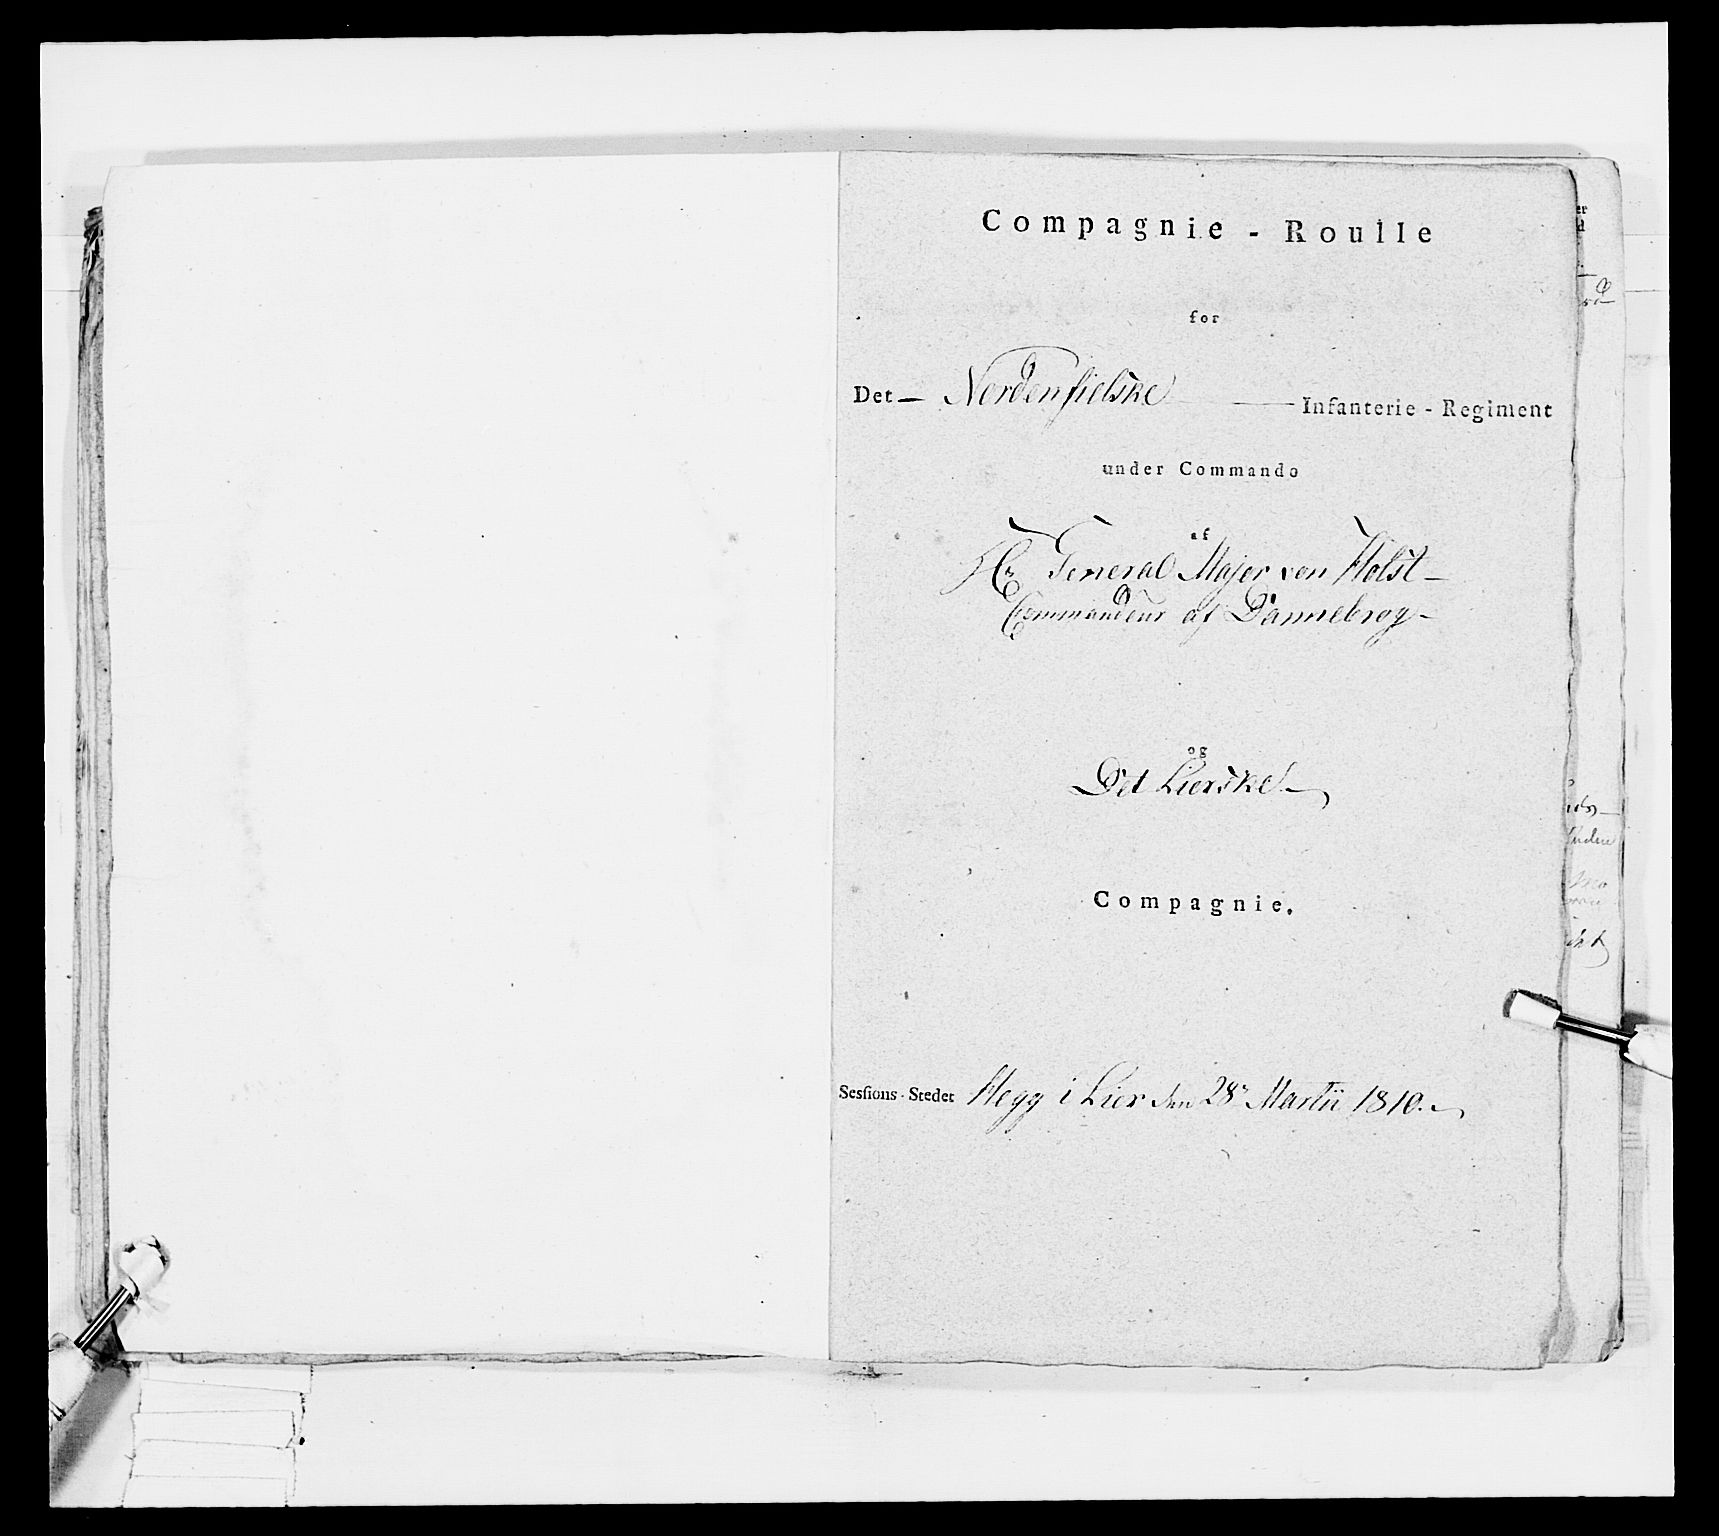 Compagnie - Roulle
for
Det — Nordenfielske — Infanterie - Regiment
under Commando
af
Hr General Major von Holst —
Commandeur af Dannebrog —
og
Det Lierske
Compagnie.
Sesſions - Stedet Hegg i Lier den 28de Martii 1810.